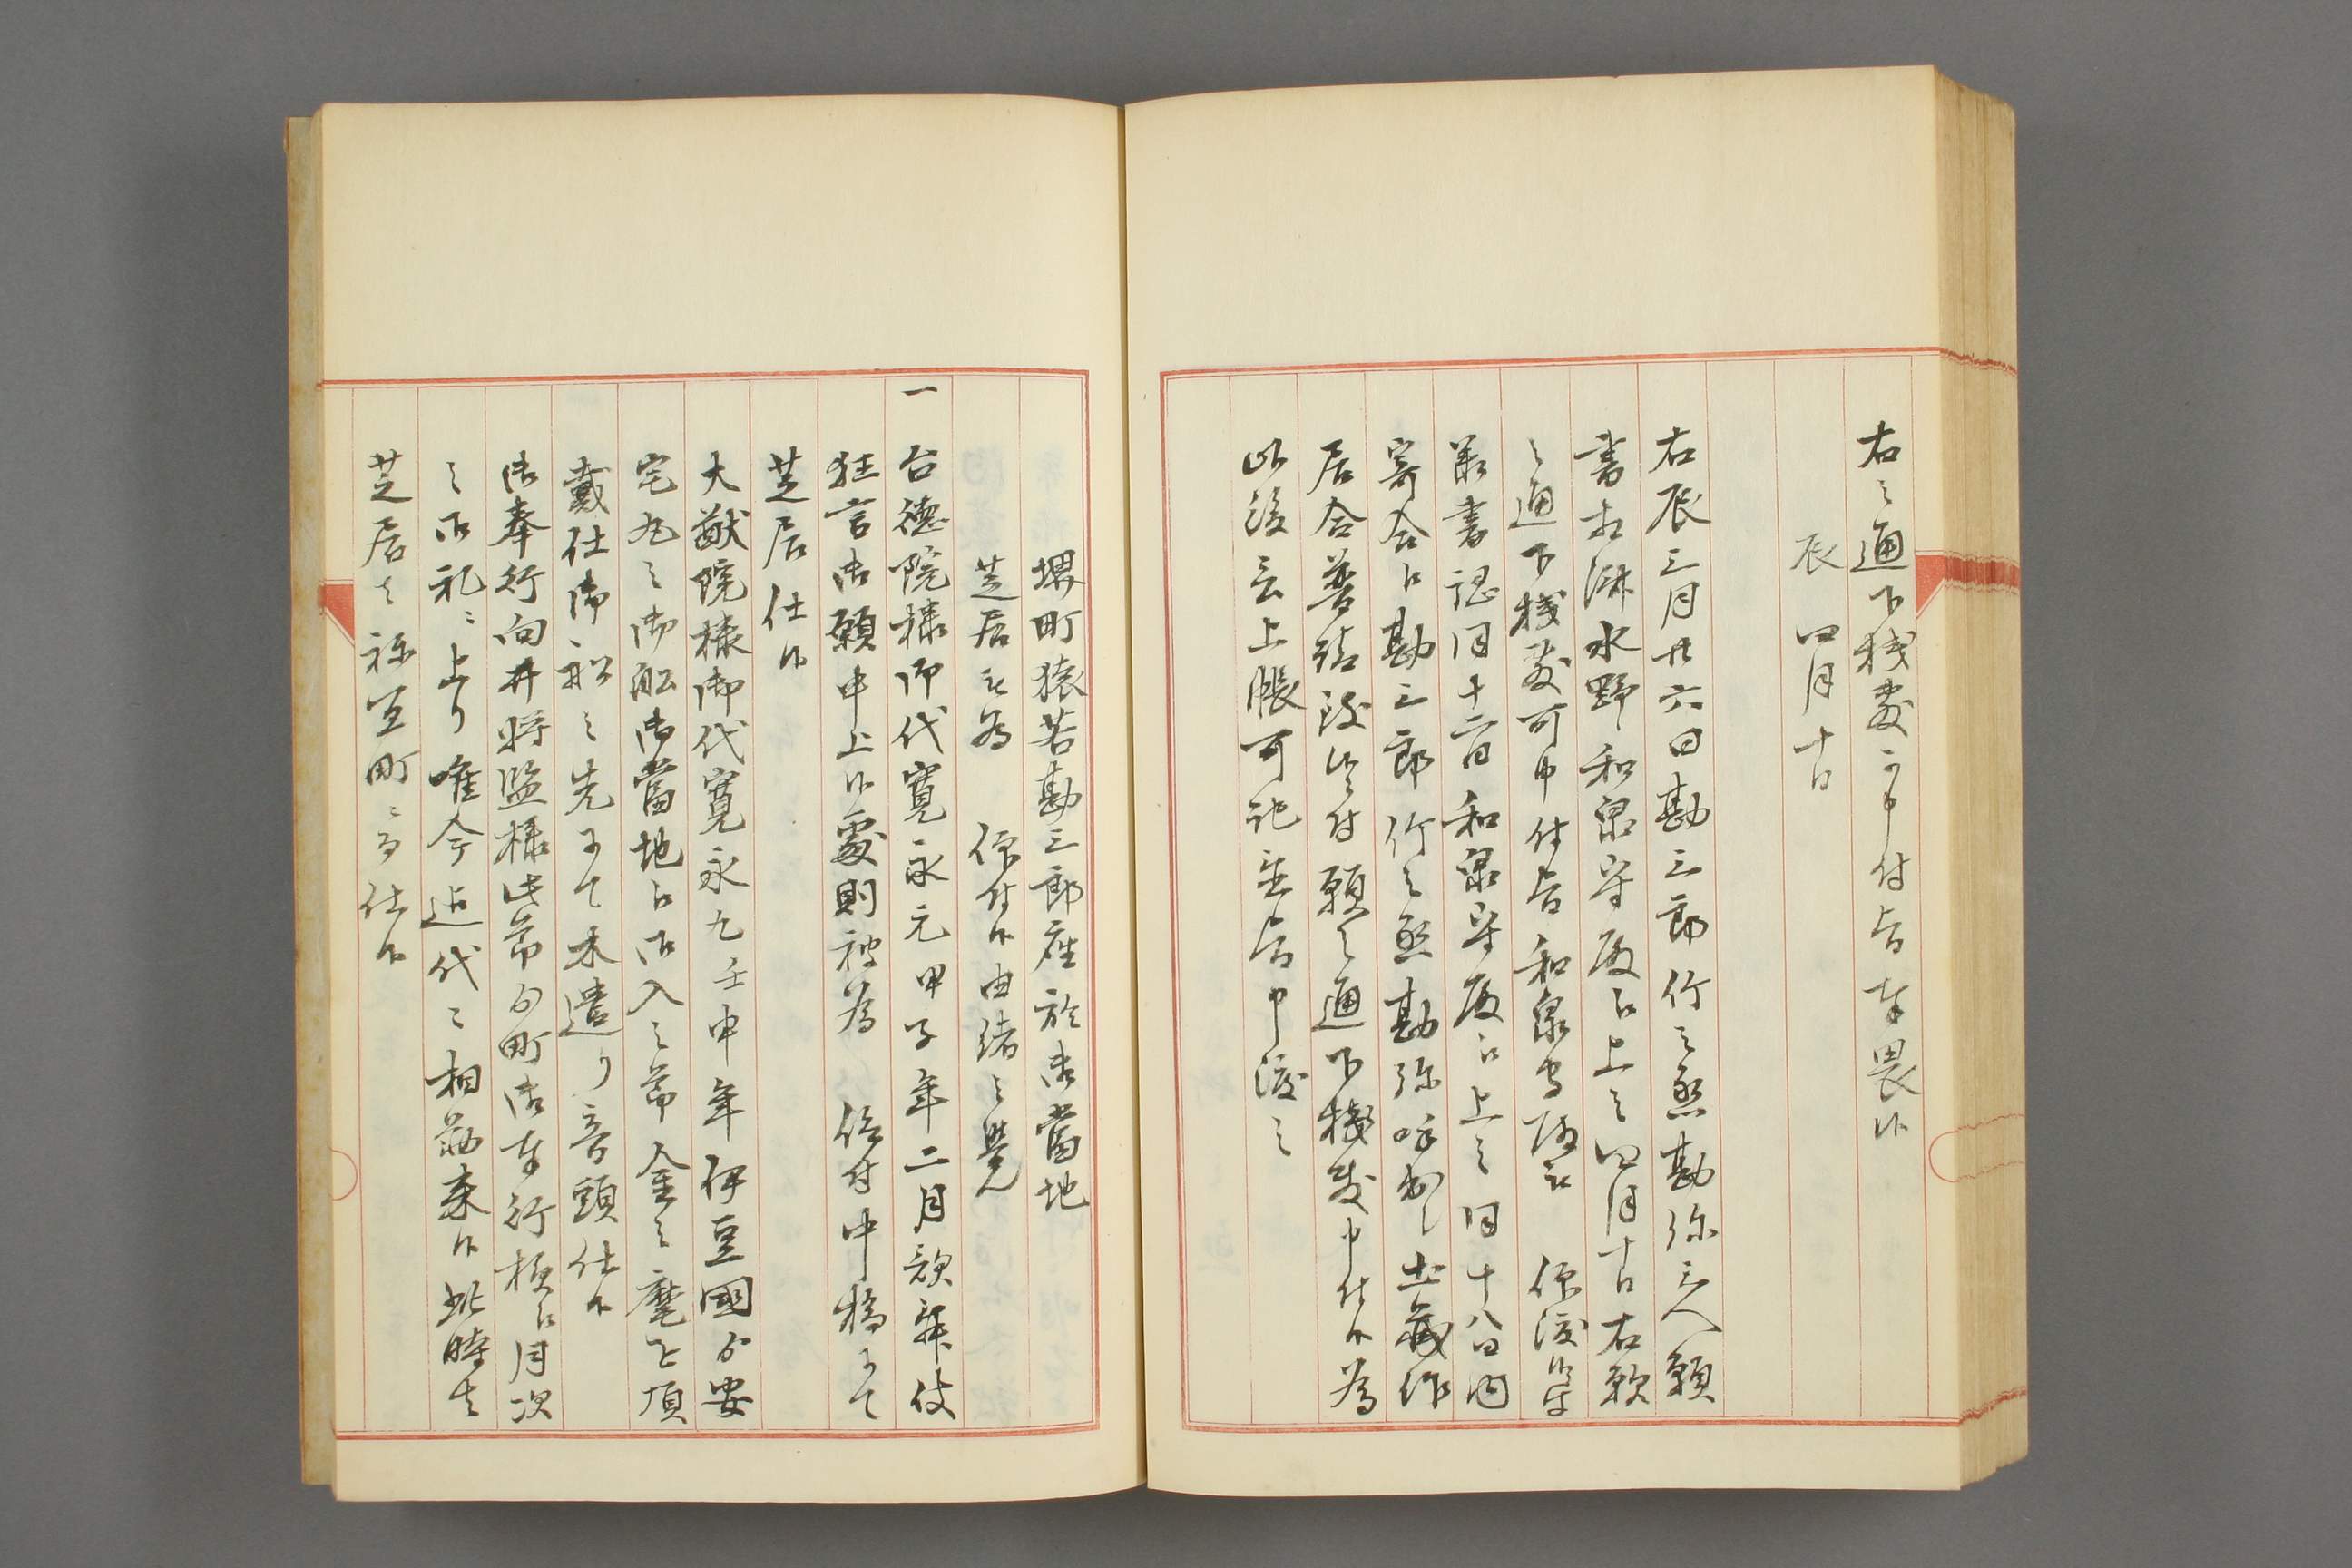 右之通下桟敷可申付旨奉畏候
辰四月十日
右辰三月廿六日勘三郎竹之丞勘弥三人願
書相添水野和泉守殿江上之四月十日右願
之通下桟敷可申付旨和泉守殿被仰渡候付
業書認同十二日和泉守殿江上之同十八日内
寄合江勘三郎竹之丞勘弥呼出し土蔵作
居合普請致候付願之通下桟敷申付候為
此後言上帳可記置旨申渡之
堺町猿若勘三郎座於御當地
芝居被為仰付候由緒之覚
一台徳院様御代寛永元甲子年二月歌舞伎
狂言御願申上候處則被為仰付中橋ニて
芝居仕候
大猷院様御代寛永九壬申年伊豆國ゟ安
宅丸之御船御當地江御入之節金之麾を頂
戴仕御船之先ニて木遣り音頭仕候
御奉行向井将監様此節ゟ町御奉行様江月次
之御礼ニ上り唯今迄代々相勤来候此時者
芝居者祢宜町ニ而仕候